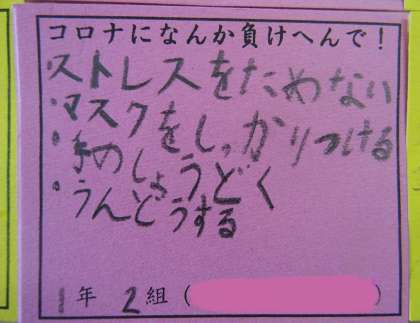 コロナになんか負けへんで！
・ストレスをためない
・マスクをしっかりつける
・手のしょうどく
・うんどうする
1年 2組（ ）